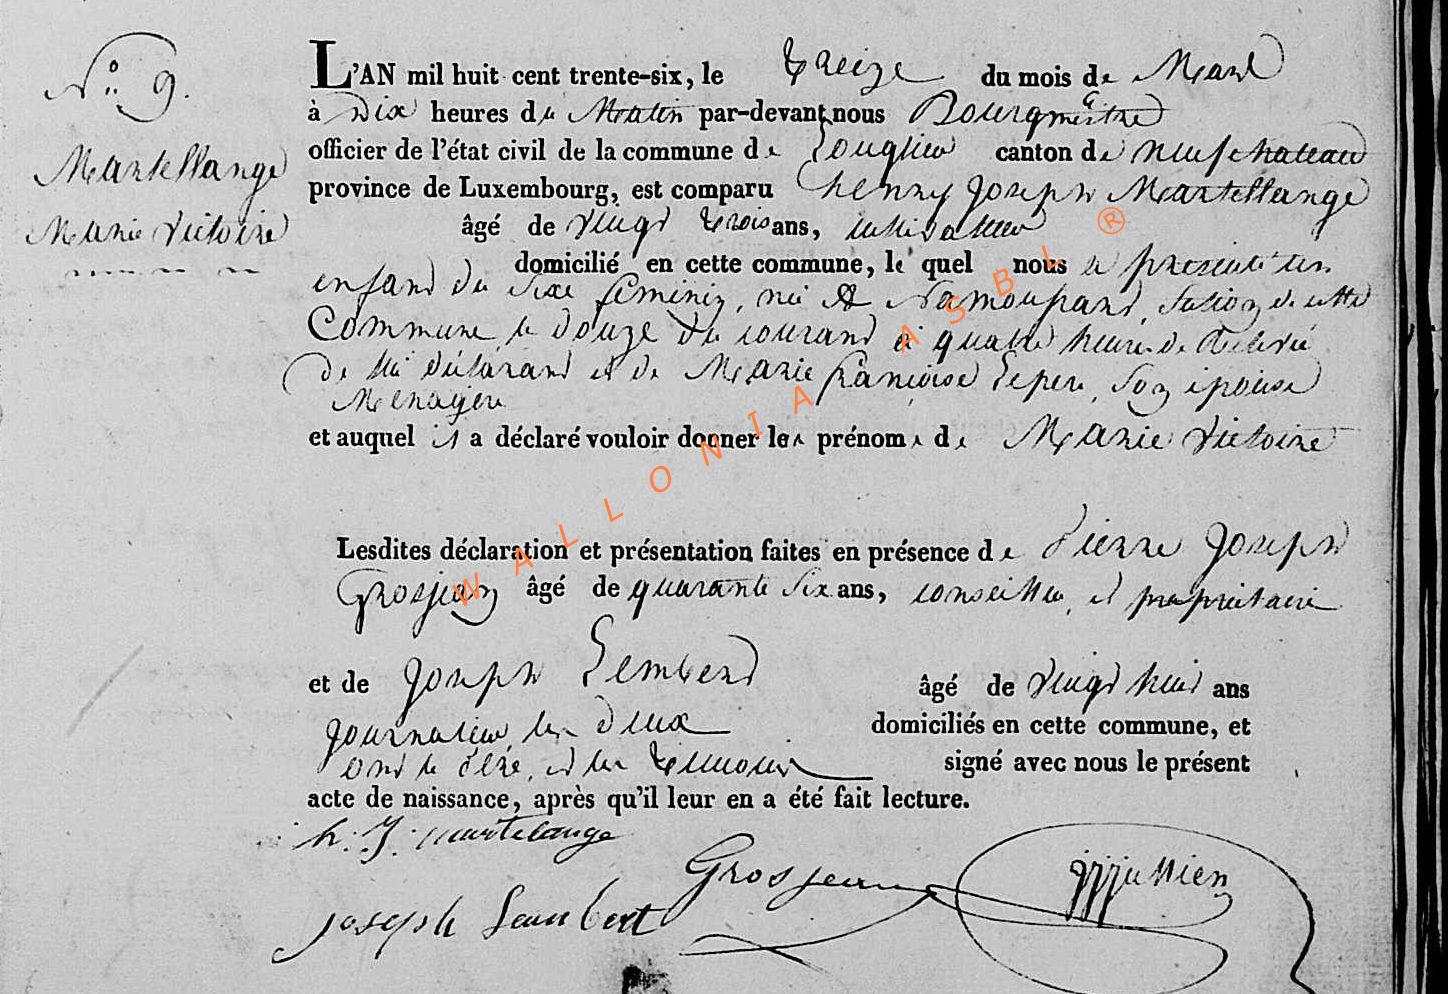 N° 9.
Martellange
Marie Victoire
L'AN mil huit cent trente-six, le treize du mois de Mars
à Dix heures du Matin par-devant nous Bourgmestre
officier de l'état civil de la commune de canton de neufchateau
province de Luxembourg, est comparu henry Joseph Martellange
âgé de vingt trois ans, cultivateur
domicilié en cette commune, le quel nous a presenté un
enfant du sexe feminin, né à Namoussart, de cette
Commune le douze du courant à quatre heure de
de lui déclarant et de Marie françoise son épouse
Menagere
et auquel il a déclaré vouloir donner les prénoms de Marie Victoire
Lesdites déclaration et présentation faites en présence de Pierre Joseph
Grosjean âgé de quarante six ans, conseiller, et propriétaire
et de Joseph Lembert âgé de vingt huit ans
journalier, les deux domiciliés en cette commune, et
ont le Père, et les temoins signé avec nous le présent
acte de naissance, après qu'il leur en a été fait lecture.
h. J. martelange
Grosjean
joseph Lambert
WALLONIA ASBL ®